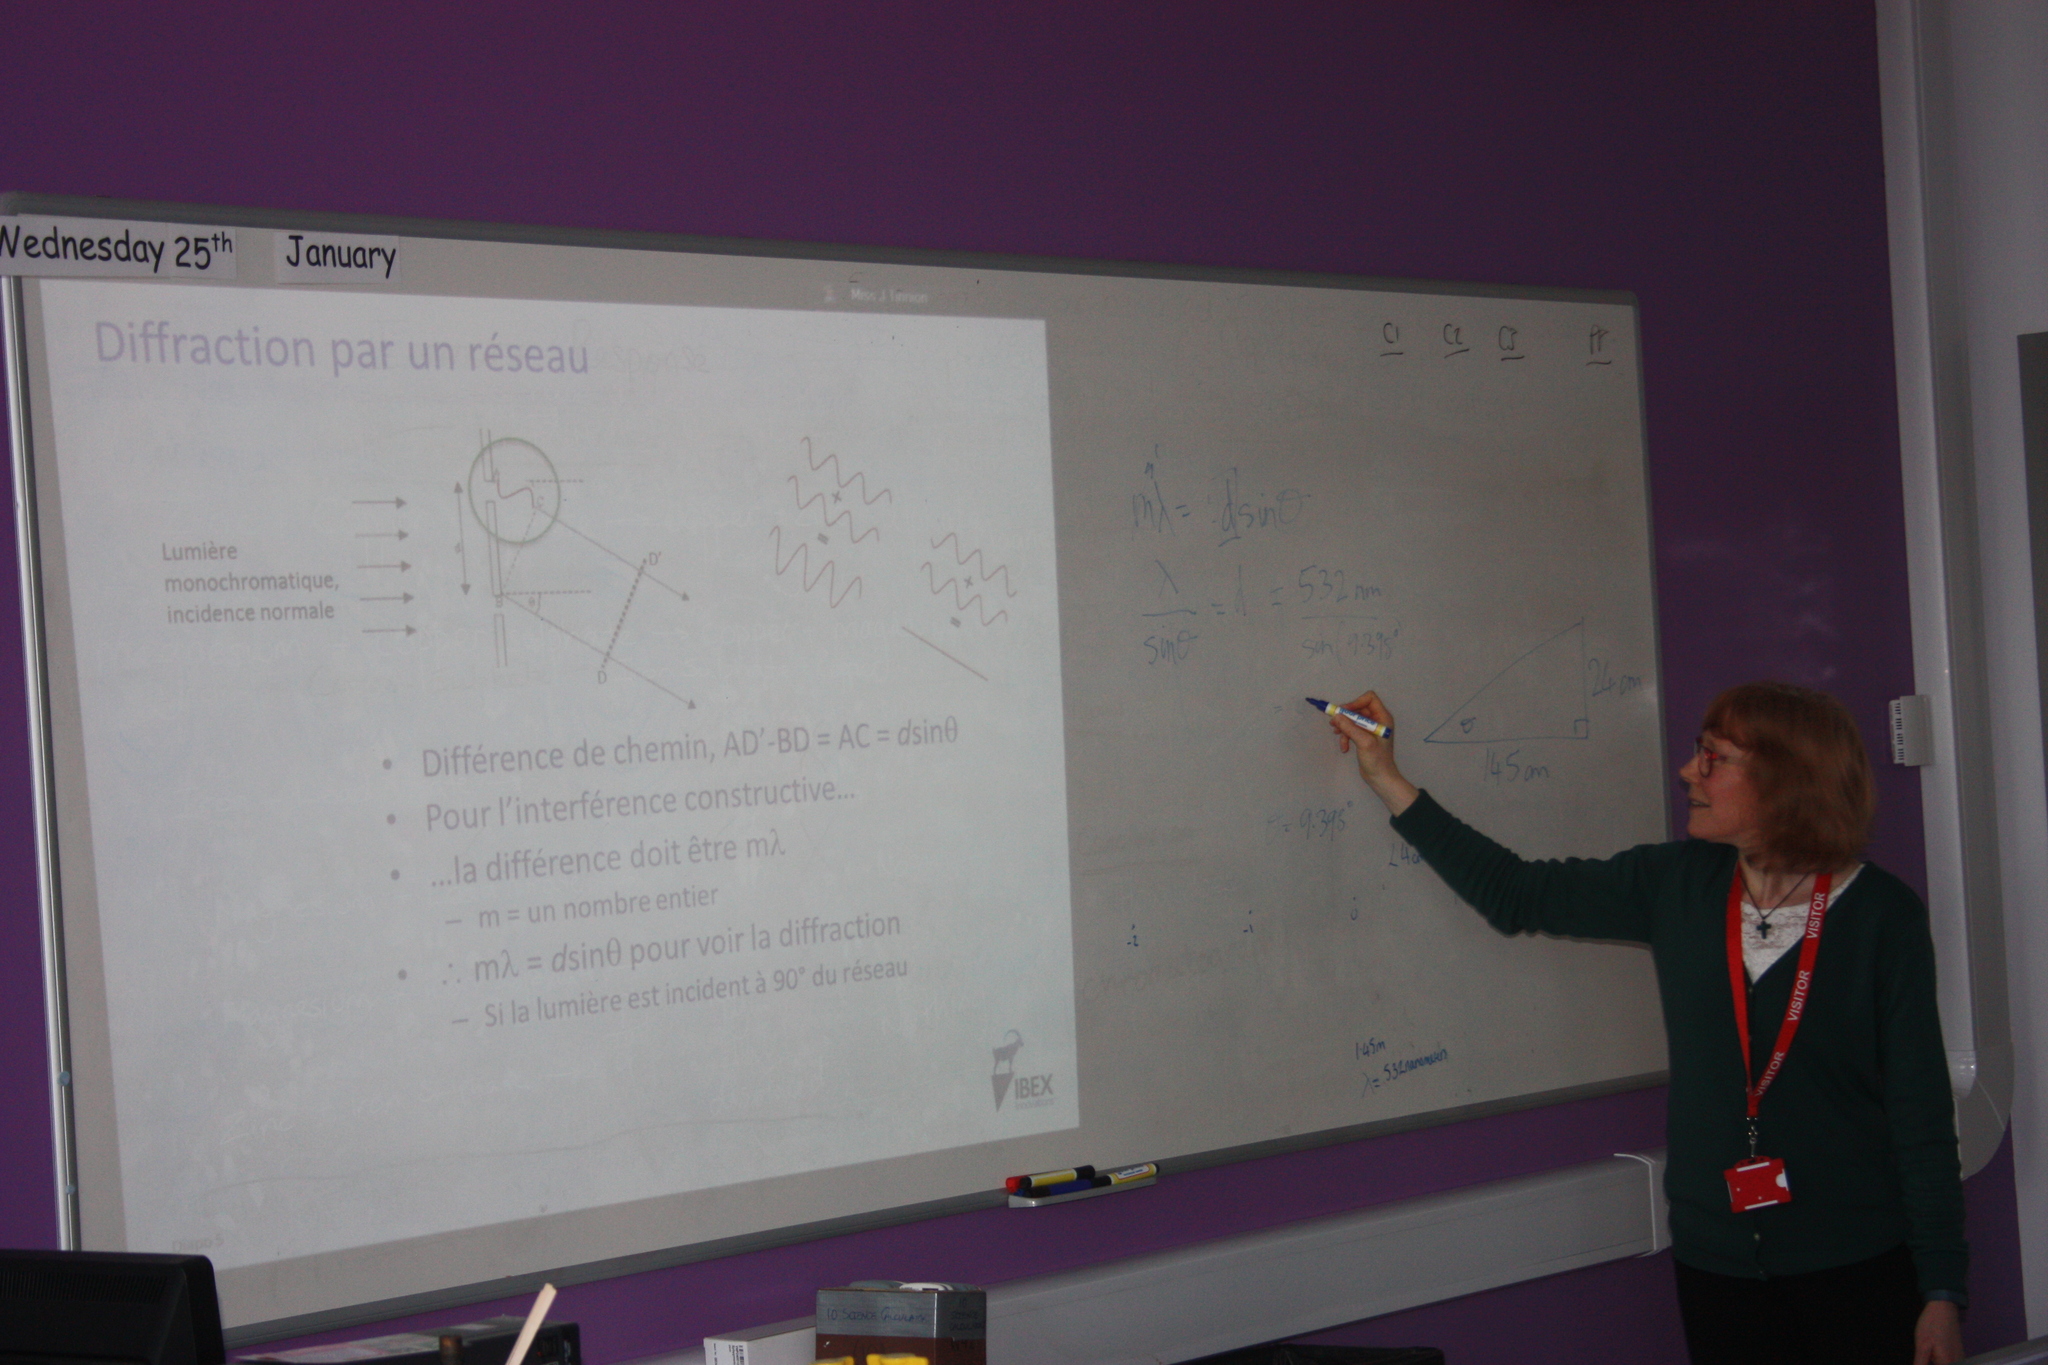 Wednesday 25th January
Miss J Tinnion
Diffraction par un réseau
Lumière
monochromatique,
incidence normale
d
C
B
θ
D'
D
x
=
x
=
• Différence de chemin, AD'-BD = AC = dsinθ
• Pour l'interférence constructive...
• ...la différence doit être mλ
– m = un nombre entier
• ∴ mλ = dsinθ pour voir la diffraction
– Si la lumière est incident à 90° du réseau
IBEX
C1 C2 C3
mλ = dsinθ
λ/sinθ = d = 532 nm/sin(9.398°)
=
θ
24 cm
145 cm
= 9.398°
-2 -1 0
1.45m
λ = 532
VISITOR
VISITOR
VISITOR